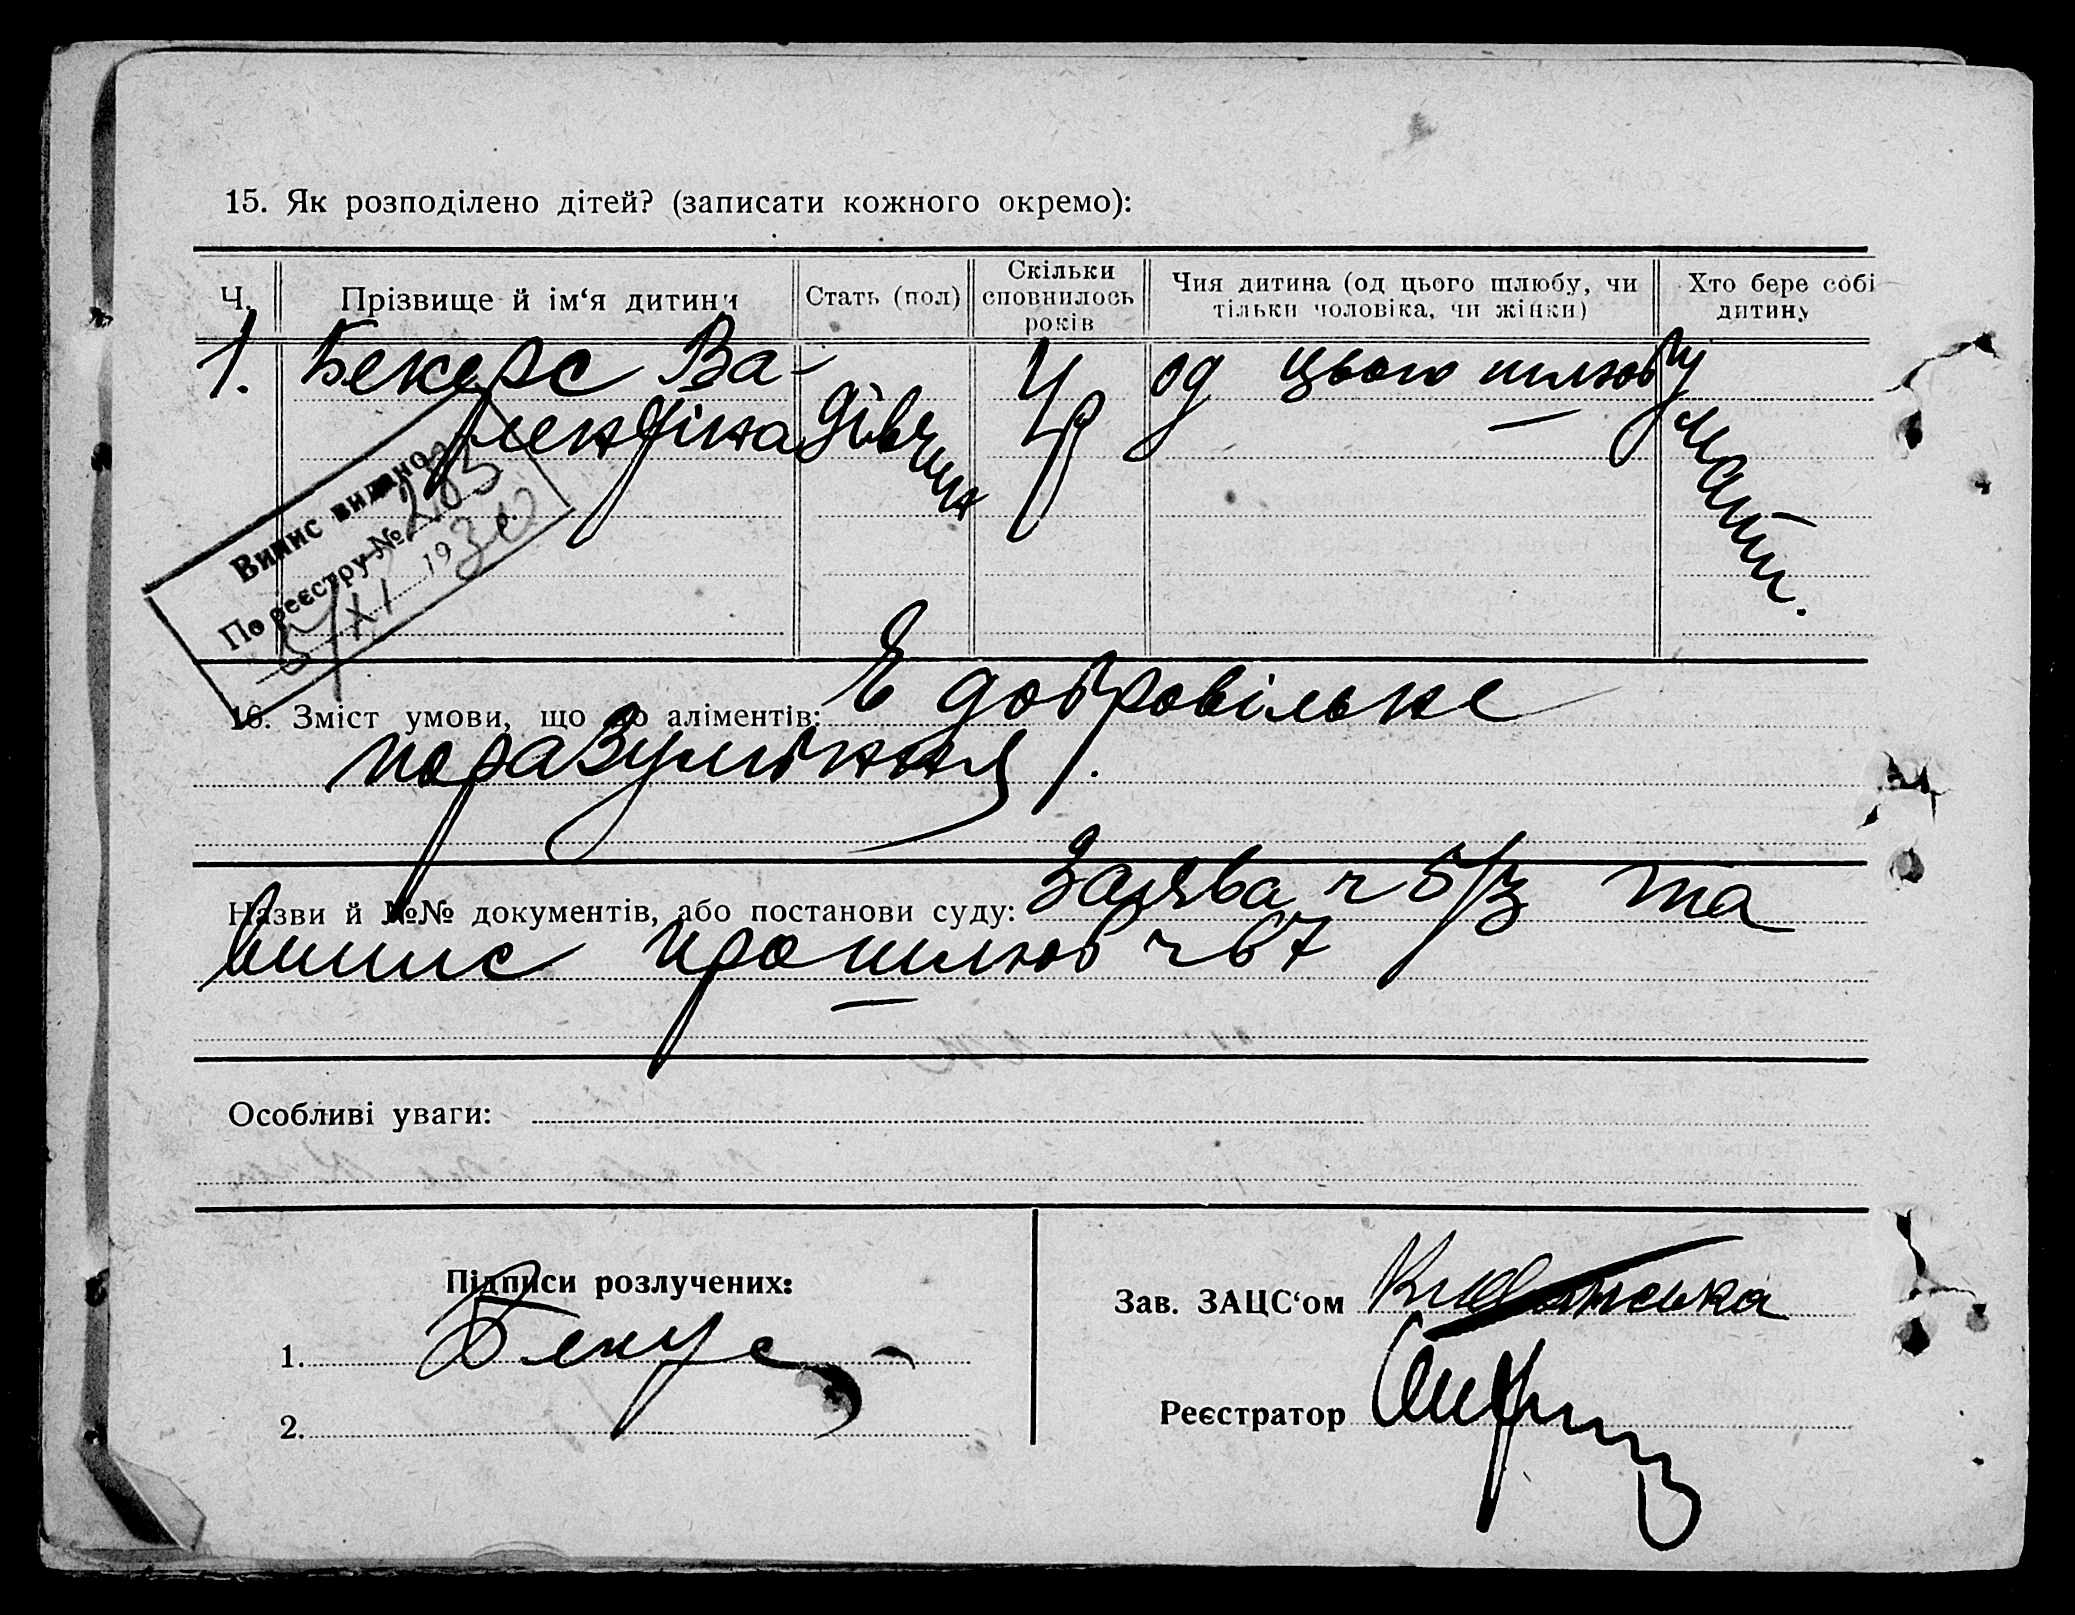 15. Як розподілено дітей? (записати кожного окремо):
Ч. Прізвище й ім‘я дитини Стать (пол) Скільки сповнилось років Чия дитина (од цього шлюбу, чи тільки чоловіка, чи жінки) Хто бере собі дитину
1. Бекерс Ва- 4 р од цього шлюбу
лентіна дівчина мати.
Випис видано
По реєстру № 283
5/XI 1930 р.
16. Зміст умови, що до аліментів: Є добровільне
поразуміння.
Назви й №№ документів, або постанови суду: Заява ч 5/3 та
випис про шлюб ч 67
Особливі уваги:
Підписи розлучених:
1.
2.
Зав. ЗАЦС‘ом
Реєстратор